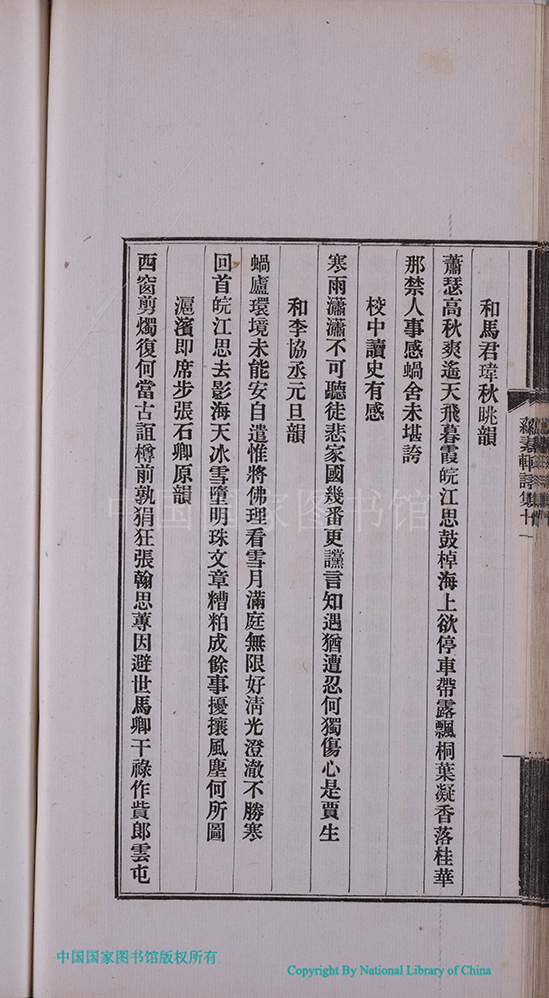 和馬君瑋秋眺韻
蕭瑟高秋爽遙天飛暮霞皖江思鼓棹海上欲停車帶露飄桐葉凝香落桂華
那禁人事感蝸舍未堪誇
校中讀史有感
寒雨瀟瀟不可聽徒悲家國幾番更讜言知遇猶遭忍何獨傷心是賈生
和李協丞元旦韻
蝸廬環境未能安自遣惟將佛理看雪月滿庭無限好清光澄澈不勝寒
回首皖江思去影海天冰雪墮明珠文章糟粕成餘事擾攘風塵何所圖
滬濱即席步張石卿原韻
西窗剪燭復何當古誼樽前孰狷狂張翰思蓴因避世馬卿干祿作貲郎雲屯
詩集十一
中国国家图书馆
中国国家图书馆版权所有
Copyright By National Library of China